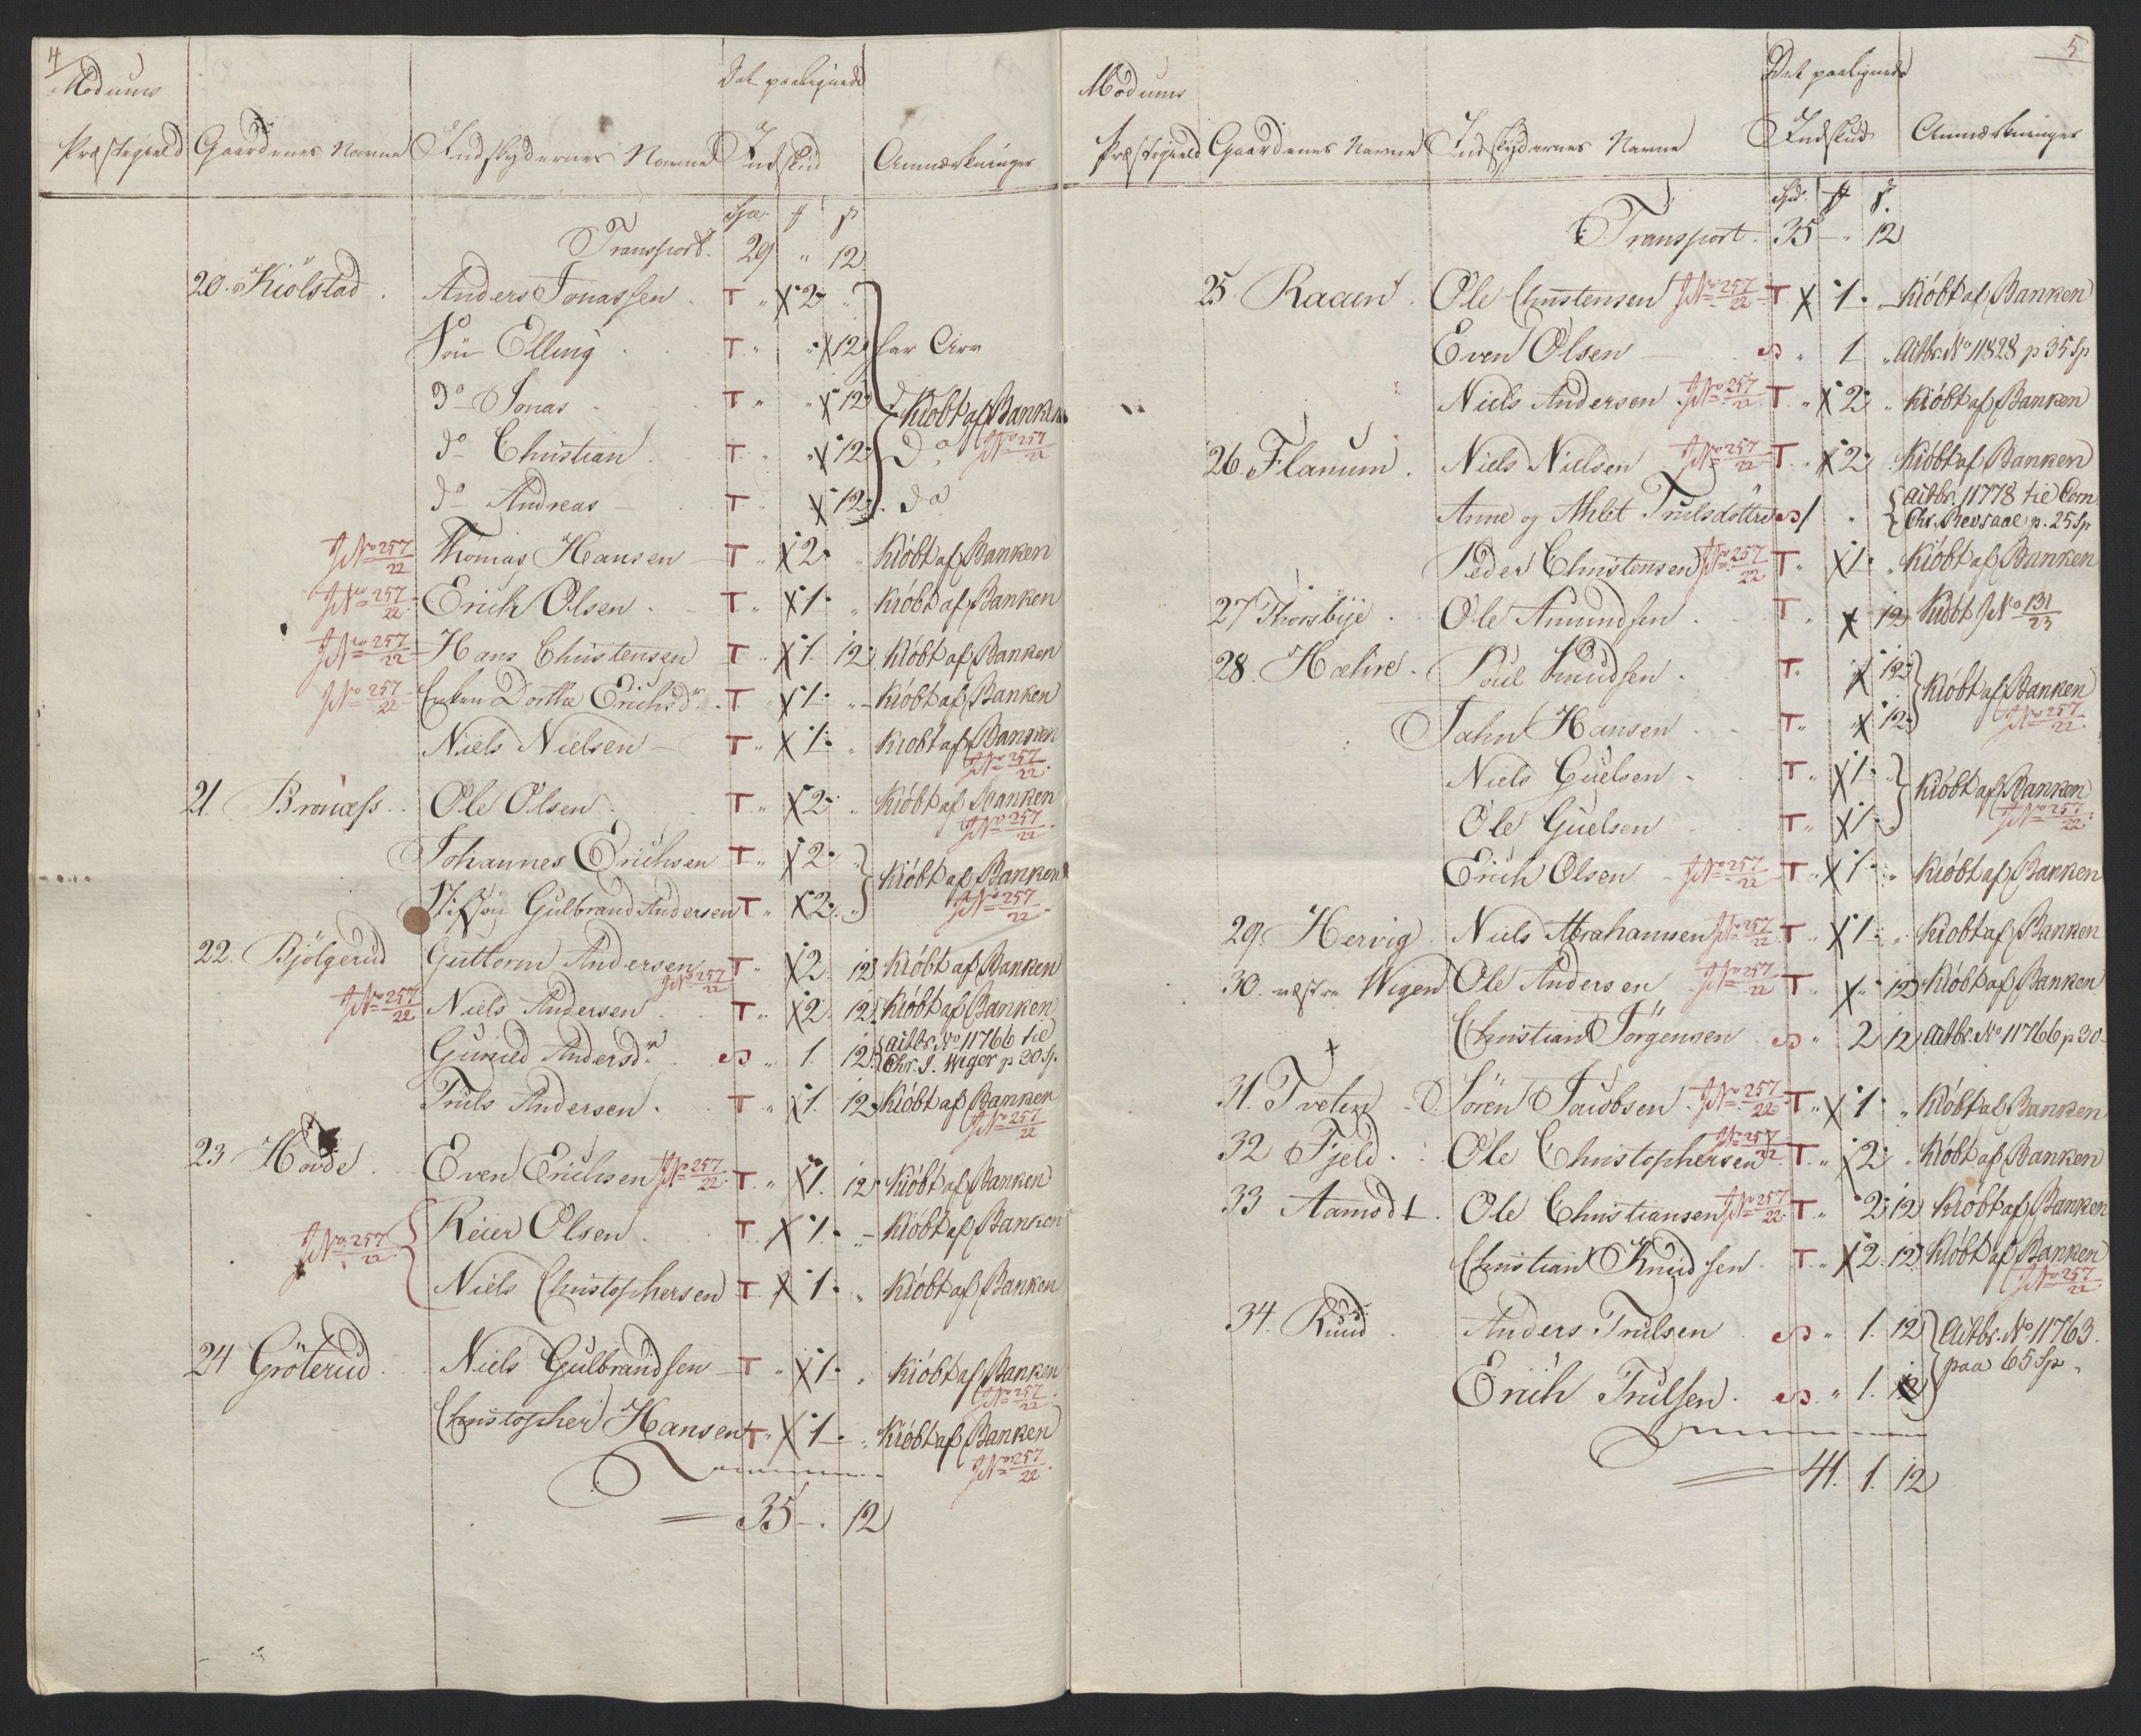 4
Modums
Præstegield Gaardenes Navne Indskydernes Navne Det paalignede Indskud Anmærkninger
Spe. ₰ s
Transport. 29 " 12
20. Kiölstad. Anders Jonassen. T " X 2 "
Sön Elling T " " X 12 har Arv
do Jonas T " " X 12 Kióbt af Banken
do Christian T " " X 12 do JNo 257/22
do Andreas T " X 12 do
JNo 257/22 Thomas Hansen T " X 2 " Kióbt af Banken
JNo 257/22 Erich Olsen T " X 1 " Kióbt af Banken
JNo 257/22 Hans Christensen T " X 1. 12 Kióbt af Banken
JNo 257/22 Enken Dorthe Erichsdr. T X 1 " Kióbt af Banken
Niels Nielsen T " X 1 " Kióbt af Banken
JNo 257/22
21. Bronæss Ole Olsen T " X 2 " Kióbt af Banken
JNo 257/22
Johannes Erichsen T " X 2 " Kióbt af Banken
Stifsön Gulbrand Andersen T " X 2 " JNo 257/22
22. Bjölgerud Guttorm Andersen JNo 257/22 T " X 2. 12 Kióbt af Banken
JNo 257/22 Niels Andersen T " X 2. 12 Kióbt af Banken
Gunild Andersdr. S " 1. 12 aitbr. No 11766 til
Chr. J. Wiger p 30 Sp.
Truls Andersen. T " X 1. 12 Kióbt af Banken
JNo 257/22
23 Hovde Even Erichsen JNo 257/22 T " X 1. 12 Kióbt af Banken
JNo 257/22 Reier Olsen T. X 1 " Kióbt af Banken
Niels Christophersen T X 1 " Kióbt af Banken
24 Gröterud Niels Gulbrandsen T " X 1 " Kióbt af Banken
JNo 257/22
Christopher Hansen T " X 1 " Kióbt af Banken
JNo 257/22
35 - . 12
5
Modums
Præstegield Gaardenes Navne Indskydernes Navne Det paalignede Indskud Anmærkninger
Spd. ₰ s.
Transport. 35 - " 12
25. Raaen. Ole Christensen JNo 257/22 T X 1. Kióbt af Banken
Even Olsen S " 1 " Aitbr. No 11828 p 35 Sp
Niels Andersen JNo 257/22 T. " X 2 " Kióbt af Banken
26. Flanum. Niels Nielsen JNo 257/22 T. " X 2 Kióbt af Banken
Anne og Ahlet Trulsdöttre S 1 " aitbr. 11778 til Corn.
Chr. Revsaae p. 25 Sp
Peder Christensen JNo 257/22 T " X 1 " Kióbt af Banken
27 Thorsbye. Ole Amundsen. T " X 12 Kióbt JNo 131/23
28. Hæhre. Poul Knudsen. T. X 12 Kióbt af Banken
Jahn Hansen T " " X 12 JNo 257/22
Niels Guelsen T " X 1 Kióbt af Banken
Ole Guelsen T " X 1 JNo 257/22
Erich Olsen JNo 257/22 T " X 1 " Kióbt af Banken
29. Hervig. Niels Abrahamsen JNo 257/22 T " X 1 " Kióbt af Banken
30. vestre Wigen Ole Andersen JNo 257/22 T " X " 12 Kióbt af Banken
Christian Jörgensen S " 2 12 aitbr. No 11766 p 30
31. Tveten Sören Jacobsen. JNo 257/22 T " X 1 " Kióbt af Banken
32 Fjeld. Ole Christophersen JNo 257/22 T. " X 2 " Kióbt af Banken
33 Aamodt. Ole Christiansen JNo 257/22 T " 2 12 Kióbt af Banken
Christian Knudsen. T. " X 2. 12 Kióbt af Banken
JNo 257/22
34. Ruud. Anders Trulsen S " 1. 12 Aitbr. No 11763.
Erich Trulsen. S. " 1. 12 paa 65 Sp.
41. 1. 12